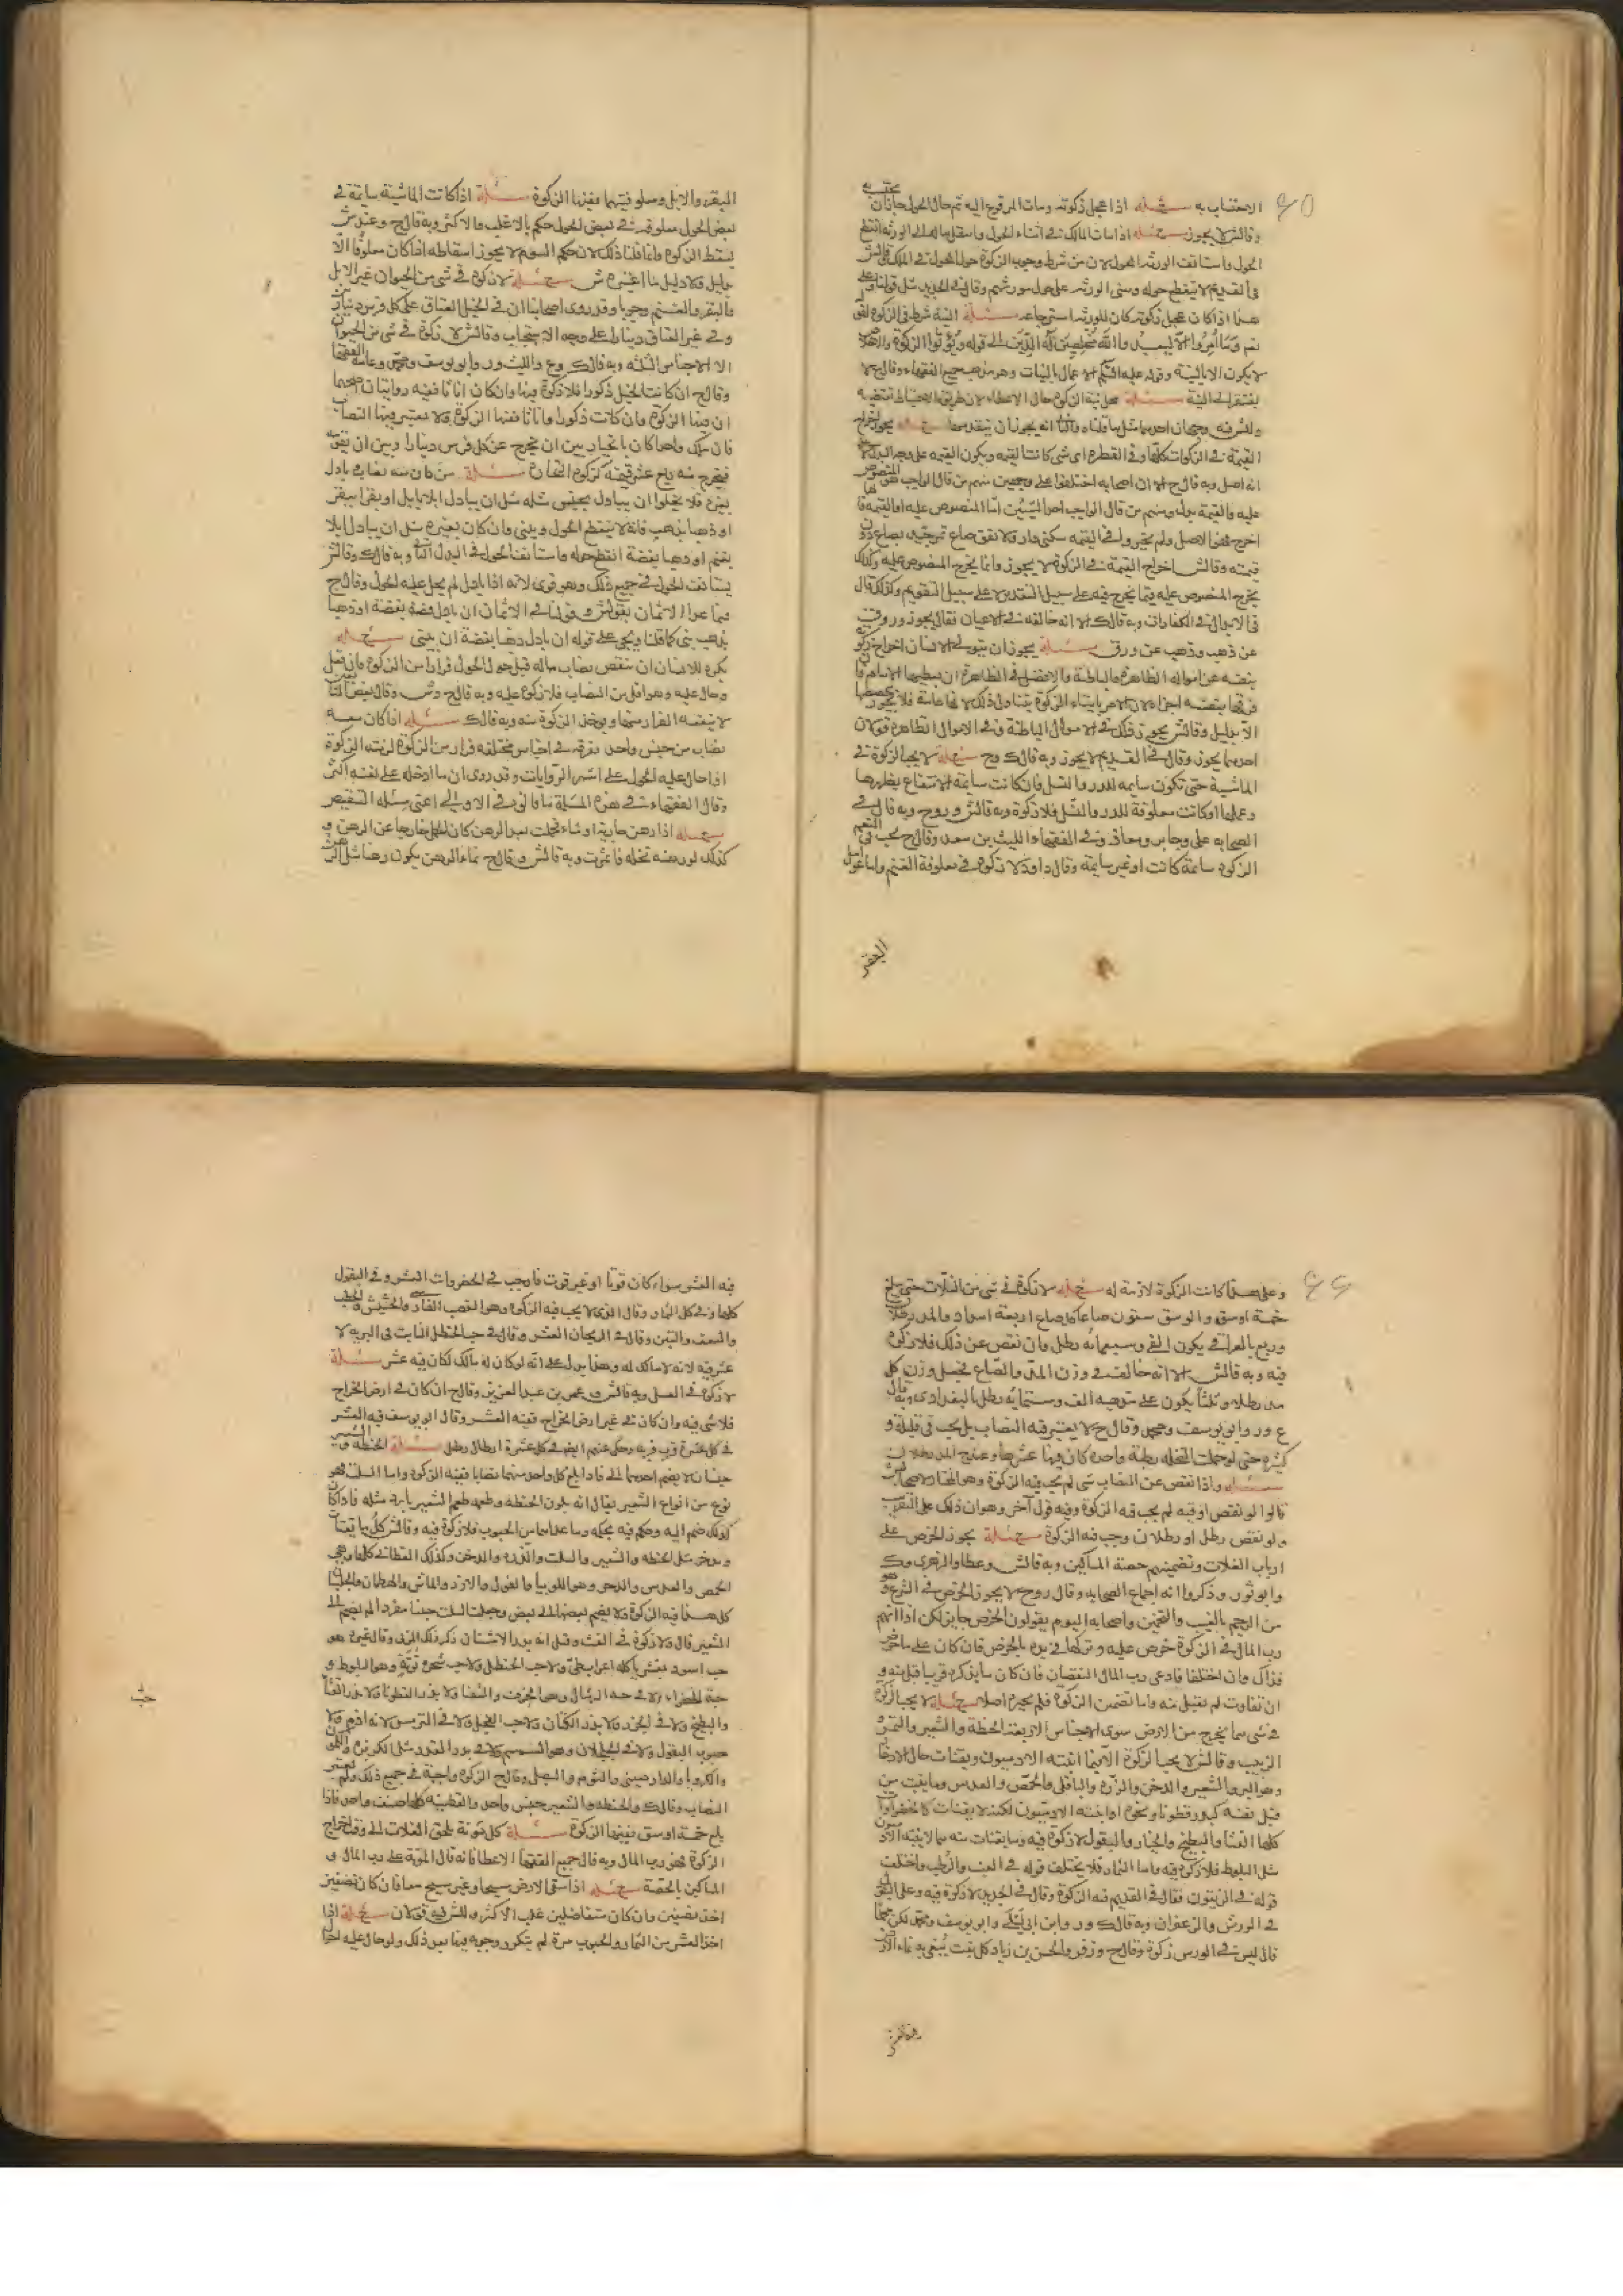 الاحتساب به مسئلة اذا عجل زكوته ومات المدفوع اليه ثم حال الحول جاز ان يحتسب به
وقال ش لا يجوز مسئلة اذا مات المالك في اثناء الحول وانتقل ماله الى الورثه انقطع
الحول واستانف الورثه الحول لان من شرط وجوب الزكوة حول الحول في الملك
في القديم لا ينقطع حوله وبنى الورثه على حول مورثهم وقال في الجديد مثل قولنا
هذا اذا كان عجل زكوته كان للورثه استرجاعه مسئلة النية شرط في الزكوة
وما امروا الا ليعبدوا الله مخلصين له الدين الى قوله ويؤتوا الزكوة
لا يكون الا بالنية وقوله عليه السلم الاعمال بالنيات وهو مذهب جميع الفقهاء وقال لا
يفتقر الى النية مسئلة محل نية الزكوة حال الاعطاء لان طريقة الاحتياط تقتضيه
وللش فيه وجهان احدهما مثل ما قلناه والثاني انه يجوز ان يتقدمها مسئلة يجوز اخراج
القيمة في الزكوات كلها وفي الفطرة اى شئ كانت القيمه ويكون القيمه على وجه البدل لا
انه اصل وبه قال ح الا ان اصحابه اختلفوا على وجهين منهم من قال الواجب هو المنصوص
عليه والقيمة بدل ومنهم من قال الواجب احد الشيئين اما المنصوص عليه او القيمة
قيمته وقال ش اخراج القيمة في الزكوة لا يجوز وانما يخرج المنصوص عليه وكذلك
يخرج المنصوص عليه فيما يخرج فيه على سبيل التقدير لا على سبيل التقويم وكذلك قال
في الابدال في الكفارات وبه قال ك الا انه خالفه في الاعيان فقال يجوز ورق
عن ذهب وذهب عن ورق مسئلة يجوز ان يتولى الانسان اخراج زكوة
بنفسه عن امواله الظاهرة والباطنة والافضل في الظاهرة ان يعطيها الامام
الا بدليل وقال ش يجوز ذلك في الاموال الباطنة وفي الاموال الظاهرة قولان
احدهما يجوز وقال في القديم لا يجوز وبه قال ك وح مسئلة لا يجب الزكوة في
الماشية حتى تكون سايمه للدر والنسل فان كانت سايمة للانتفاع بظهرها
وعملها او كانت معلوفة للدر والنسل فلا زكوة وبه قال ش و ر وح وبه قال في
الصحابه على وجابر ومعاذ وفي الفقهاء الليث بن سعد وقال ك يجب في النعم
الزكوة سائمة كانت او غير سايمة وقال داود لا زكوة في معلوفة الغنم واما عوامل
البقر
البقر والابل ومعلوفتهما ففيها الزكوة مسئلة اذا كانت الماشية سايمة في
بعض الحول معلوفة في بعض الحول حكم بالاغلب والاكثر وبه قال ح وعند ش
يسقط الزكوة وانما قلنا ذلك لان حكم السوم لا يجوز اسقاطه اذا كان معلوفا الا
بدليل ولا دليل ما اعتبره ش مسئلة لا زكوة في شئ من الحيوان غير الابل
والبقر والغنم وجوبا وقد روى اصحابنا ان في الخيل العتاق على كل فرس ديناران
وفي غير العتاق دينارا على وجه الاستحباب وقال ش لا زكوة في شئ من الحيوان
الا الاجناس الثلثه وبه قال ك و ع والليث و ر وابو يوسف ومحمد وعامة الفقهاء
وقال ح ان كانت الخيل ذكورا فلا زكوة فيها وان كان اناثا ففيه روايتان اصحهما
ان فيها الزكوة وان كانت ذكورا واناثا ففيها الزكوة ولا يعتبر فيها النصاب
فان ملك واحدا كان بالخيار بين ان يخرج عن كل فرس دينارا وبين ان يقومه
فيخرج منه ربع عشر قيمته كزكوة التجارة مسئلة من كان معه نصاب فبادل
بغيره فلا يخلوا ان يبادل بجنس مثله مثل ان يبادل ابلا بابل او بقرا ببقر
او ذهبا بذهب فانه لا ينقطع الحول ويبنى وان كان بغيره مثل ان يبادل ابلا
بغنم او ذهبا بفضة انقطع حوله واستانف الحول في البدل الثاني وبه قال ك وقال ش
يستانف الحول في جميع ذلك وهو قوى لانه اذا بادل لم يحل عليه الحول وقال ح
فيما عدا الاثمان بقول ش وقولنا في الاثمان ان بادل فضة بفضة او ذهبا
بذهب بنى كما قلنا ويجئ على قوله ان بادل ذهبا بفضة ان يبنى مسئلة
يكره للانسان ان ينقص نصاب ماله قبل حول الحول فرارا من الزكوة فان فعل
وحال عليه وهو اقل من النصاب فلا زكوة عليه وبه قال ح و ش وقال بعض
لا ينفعه الفرار منها ويؤخذ الزكوة منه وبه قال ك مسئلة اذا كان معه
نصاب من جنس واحد ففرقه في اجناس مختلفه فرارا من الزكوة لزمته الزكوة
اذا حال عليه الحول على اشهر الروايات وقد روى ان ما ادخله على نفسه اكثر
وقال الفقهاء في هذه المسئلة ما قالوه في الاولى اعنى مسئلة التنقيص
مسئلة اذا رهن جارية او شاة فحملت بعد الرهن كان الحمل خارجا عن الرهن و
كذلك لو رهنه نخله فاثمرت وبه قال ش وقال ح نماء الرهن يكون رهنا مثل الرهن
وعلى هذا كانت الزكوة لازمة له مسئلة لا زكوة في شئ من الغلات حتى يبلغ
خمسة اوسق والوسق ستون صاعا كل صاع اربعة امداد والمد رطلان
وربع بالعراقى يكون الفى وسبعمائه رطل وان نقص عن ذلك فلا زكوة
فيه وبه قال ش الا انه خالف في وزن المد والصاع فجعل وزن كل
مد رطلا وثلثا يكون على مذهبه الف وستمايه رطل بالبغدادى وبه قال
ع و ر وابو يوسف ومحمد وقال ح لا يعتبر فيه النصاب بل يجب في قليله و
كثيره حتى لو حملت النخلة رطبة واحدة كان فيها عشرها وعند ح المد رطلان
مسئلة واذا نقص عن النصاب شئ لم يجب فيه الزكوة وهو المختار لاصحاب ش
قالوا لو نقص اوقيه لم يجب فيه الزكوة وفيه قول آخر وهو ان ذلك على التقريب
ولو نقص رطل او رطلان وجب فيه الزكوة مسئلة يجوز الخرص على
ارباب الغلات وتضمينهم حصة المساكين وبه قال ش وعطا والزهرى وك
وابو ثور وذكروا انه اجماع الصحابه وقال ر وح لا يجوز الخرص في الشرع وهو
من الرجم بالغيب والتخمين واصحابه اليوم يقولون الخرص جايز لكن اذا اتهم
رب المال في الزكوة خرص عليه وتركها في يده بالخرص فان كان على ما خرص
فذاك وان اختلفا فادعى رب المال النقصان فان كان ما يذكره قريبا قبل منه و
ان تفاوت لم يقبل منه واما تضمين الزكوة فلم يجيزه اصلا مسئلة لا يجب الزكوة
في شئ مما يخرج من الارض سوى الاجناس الاربعة الحنطة والشعير والتمر و
الزبيب وقال ش لا يجب الزكوة الا فيما انبته الادميون ويقتات حال الادخار
وهو البر والشعير والدخن والذرة والباقلى والحمص والعدس وما ينبت من
قبل نفسه كبذر قطونا ونحوه او انبته الادميون لكنه لا يقتات كالخضراوات
كلها القثا والبطيخ والخيار والبقول لا زكوة فيه وما يقتات منه مما لا ينبته الآدميون
مثل البلوط فلا زكوة فيه واما الثمار فلا يختلف قوله في العنب والرطب واختلف
قوله في الزيتون فقال في القديم فيه الزكوة وقال في الجديد لا زكوة فيه وعلى القولين
في الورس والزعفران وبه قال ك و ر وابن ابى ليلى وابو يوسف ومحمد لكن محمدا
قال ليس في الورس زكوة وقال ح وزفر والحسن بن زياد كل نبت يبتغى به نماء الارض
فيه العشر سواء كان قوتا او غير قوت فاوجب في الخضروات العشر وفي البقول
كلها وفي كل الثمار وقال الذى لا يجب فيه الزكوة وهو القصب الفارسى والحشيش والحطب
والسعف والتبن وقال في الريحان العشر وقال في حب الحنظل النابت في البريه لا
عشر فيه لانه لا مالك له وهذا يدل على انه لو كان له مالك لكان فيه عشر مسئلة
لا زكوة في العسل وبه قال ش و عمر بن عبد العزيز وقال ح ان كان في ارض الخراج
فلا شئ فيه وان كان في غير ارض الخراج ففيه العشر وقال ابو يوسف فيه العشر
في كل عشرة قرب قربه وحكى عنهم ايضا في كل عشرة ارطال رطل مسئلة الحنطه والشعير
جنسان لا يضم احدهما الى فاذا بلغ كل واحد منهما نصابا ففيه الزكوة واما السلت فهو
نوع من انواع الشعير يقال انه بلون الحنطه وطعمه طعم الشعير بارد مثله فاذا كان
كذلك ضم اليه وحكم فيه بحكمه وما عداهما من الحبوب فلا زكوة فيه وقال ش كل ما يقتات
ويدخر مثل الحنطه والشعير والسلت والذره والدخن وكذلك القطانى كلها وهى
الحمص والعدس والدجر وهو اللوبيا والفول والارز والماش والهرطمان والجلبان
كل هذا فيه الزكوة ولا يضم بعضها الى بعض وجعلت السلت جنسا مفردا لم يضم الى
الشعير قال ولا زكوة في الفث وقيل انه بزر الاشنان ذكر ذلك المزنى وقال غيره هو
حب اسود يقشر ياكله اعراب طى ولا حب الحنظل ولا حب شجرة بريه وهو البلوط و
حبة الخضراء ولا في حبه الرشاد وهو الحرف والثفا ولا بذر القطونا ولا بذر القثاء
والبطيخ ولا في الجزر ولا بذر الكتان ولا حب الفجل ولا في الترمس لانه ادم ولا
حبوب البقول ولا في الجلجلان وهو السمسم ولا في بزر القدور مثل الكزبره والكمون
والكرويا والدارصينى والثوم والبصل وقال ح الزكوة واجبة في جميع ذلك ولم يعتبر
النصاب وقال ك والحنطه والشعير جنس واحد والقطنيه كلها صنف واحد فاذا
بلغ خمسة اوسق ففيها الزكوة مسئلة كل مؤنة تلحق الغلات الى وقت اخراج
الزكوة فهو رب المال وبه قال جميع الفقهاء الا عطا فانه قال المؤنة على رب المال و
المساكين بالحصة مسئلة اذا سقى الارض سيحا وغير سيح معا فان كان نصفين
اخذ نصفين وان كان متفاضلين غلب الاكثر وللش فيه قولان مسئلة اذا
اخذ العشر من الثمار والحبوب مرة لم يتكرر وجوبه فيها بعد ذلك ولو حال عليه احوال